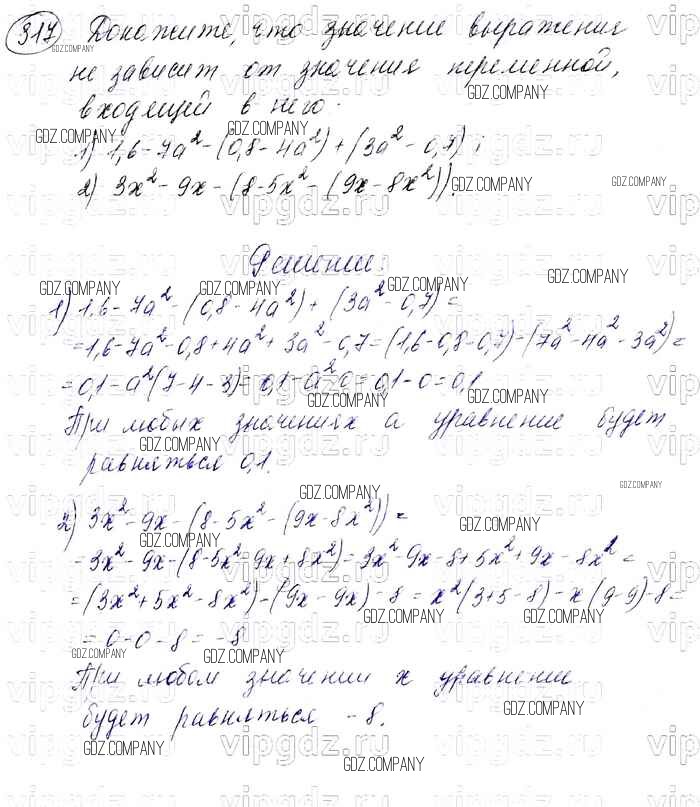 317 Докажите, что значение выражения
не зависит от значения переменной,
входящей в него:
1) 1,6-7a²-(0,8-4a²)+(3a²-0,7);
2) 3x²-9x-(8-5x²-(9x-8x²)).
Решение:
1) 1,6-7a²-(0,8-4a²)+(3a²-0,7)=
=1,6-7a²-0,8+4a²+3a²-0,7=(1,6-0,8-0,7)-(7a²-4a²-3a²)=
=0,1-a²(7-4-3)=0,1-a²·0=0,1-0=0,1
При любых значениях a уравнение будет
равняться 0,1.
2) 3x²-9x-(8-5x²-(9x-8x²))=
=3x²-9x-(8-5x²-9x+8x²)=3x²-9x-8+5x²+9x-8x²=
=(3x²+5x²-8x²)-(9x-9x)-8=x²(3+5-8)-x(9-9)-8=
=0-0-8=-8
При любом значении x уравнение
будет равняться -8.